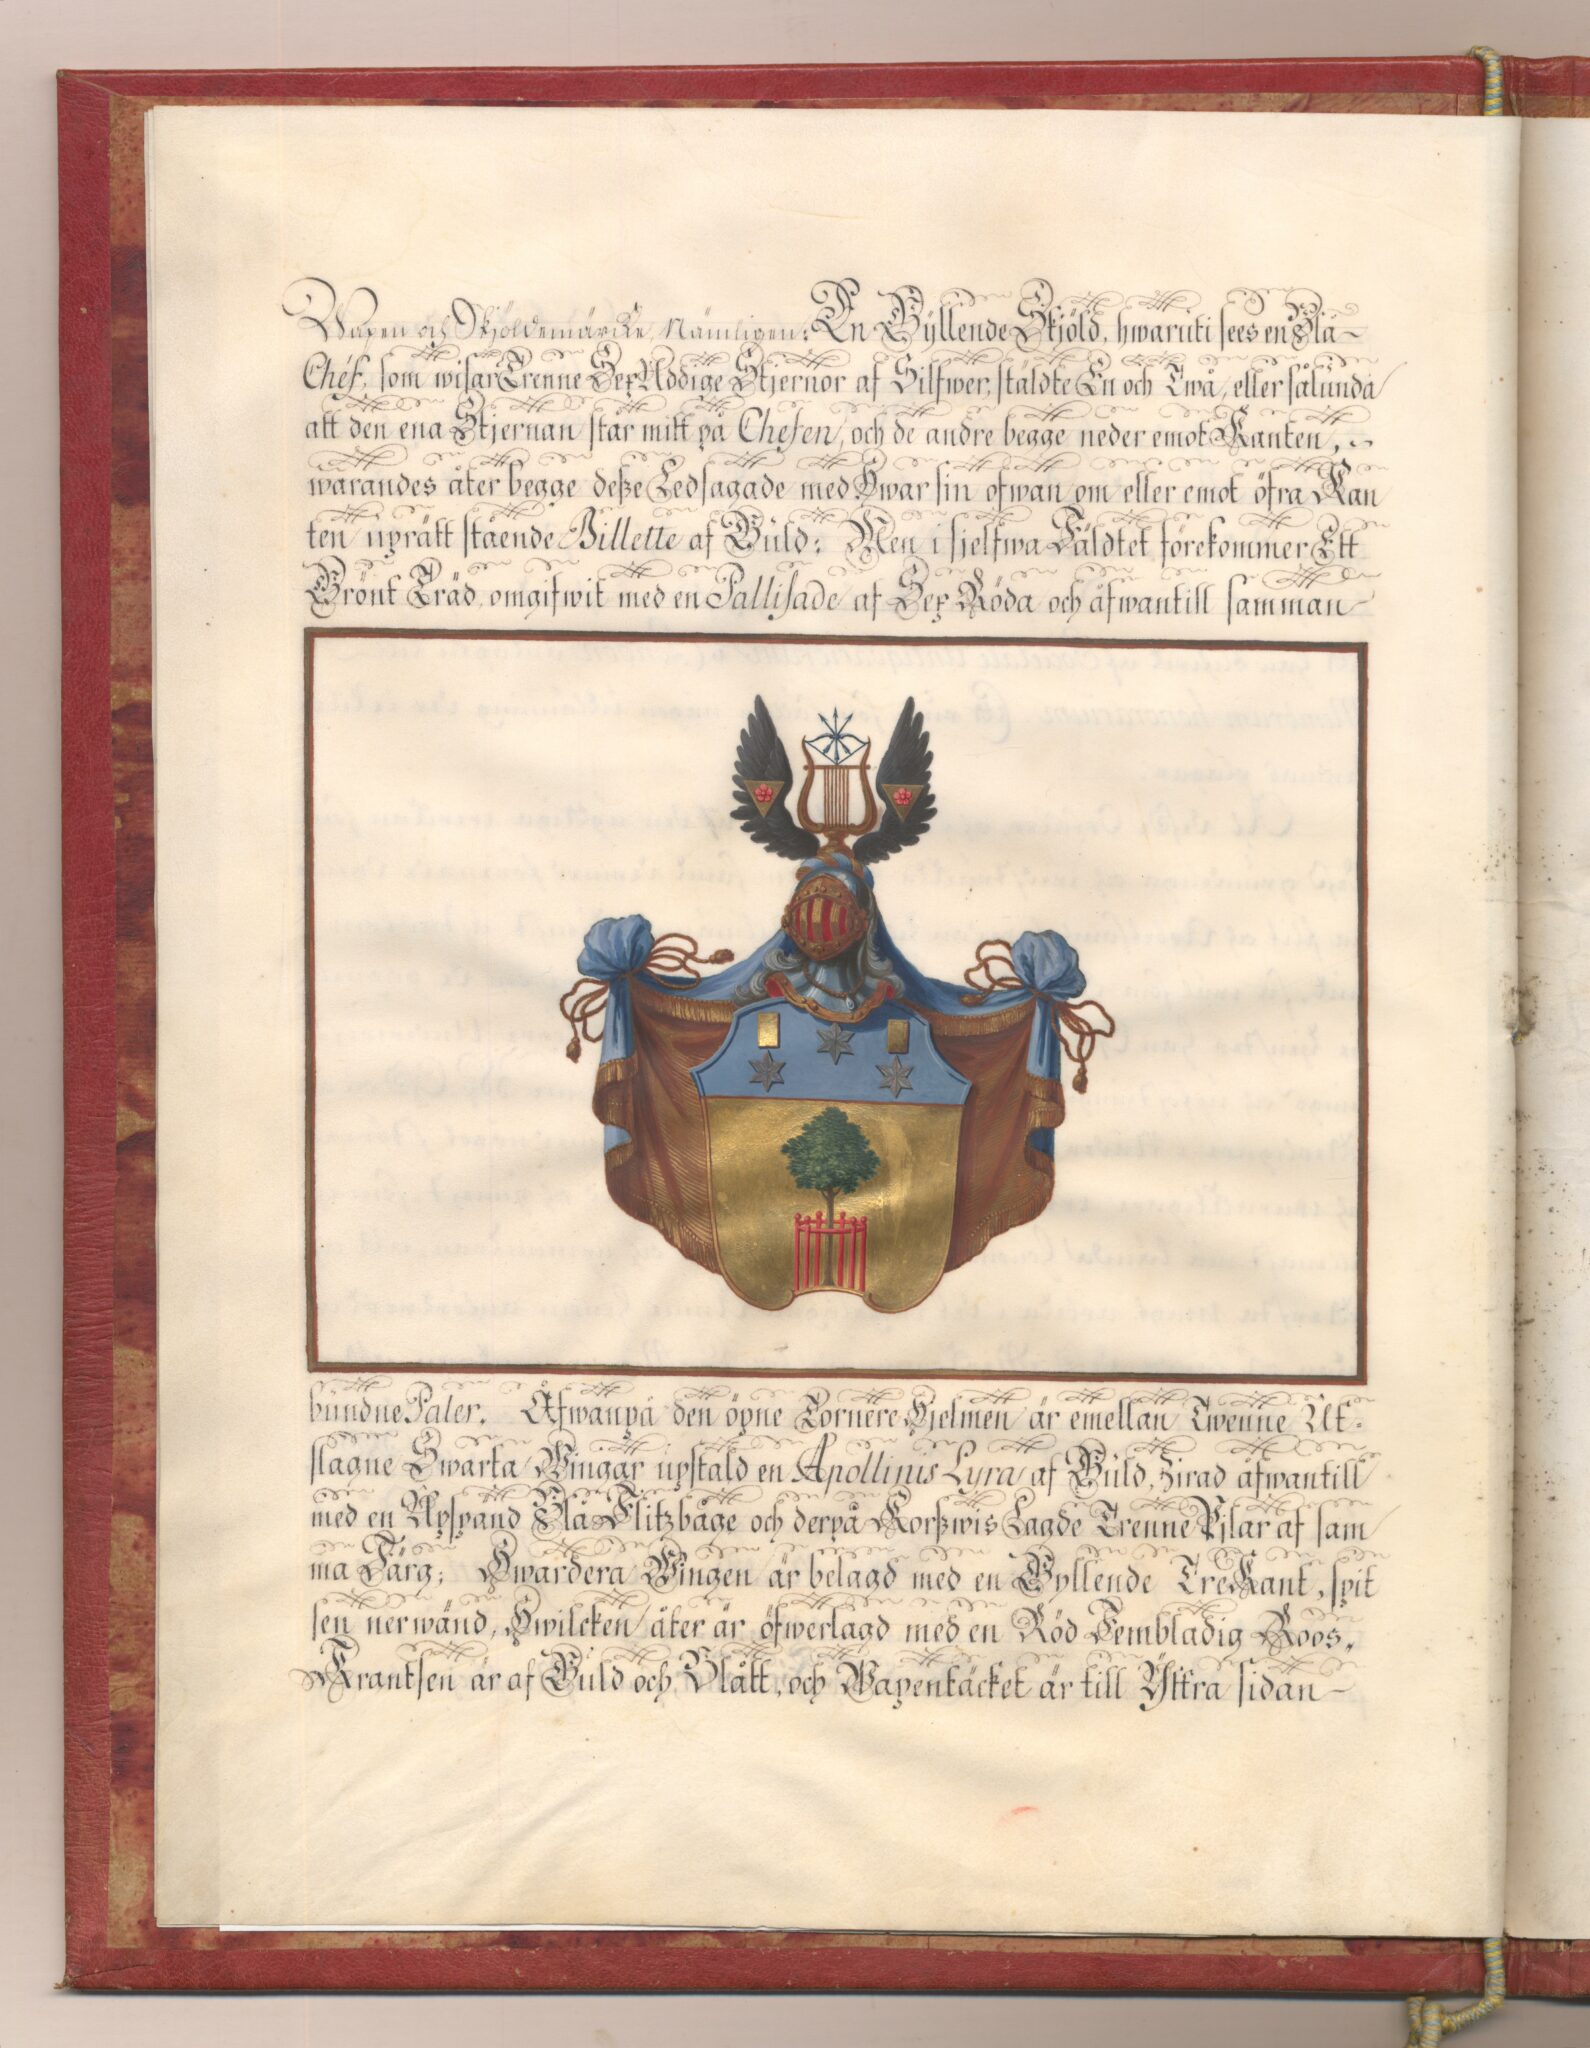 Wapen och Skjöldemärcke, Nämligen: En Gyllende Skjöld, hwaruti sees en Blå
Chef, som wisar Trenne Sex Uddige Stjernor af Silfwer, stäldte En och Twå, eller sålunda
att den ena Stjernan står mitt på Chefen, och de andre begge neder emot Kanten,
warandes åter begge deße Ledsagade med Hwar sin ofwan om eller emot öfra Kan
ten uprätt stående Billette af Guld: Men i sjelfwa Fäldtet förekommer Ett
Grönt Träd, omgifwit med en Pallisade af Sex Röda och åfwantill samman-
bundne Paler. Åfwanpå den öpne Tornere Hjelmen är emellan Twenne Ut-
slagne Swarta Wingar upstäld en Apollinis Lyra af Guld, Zirad åfwantill
med en Upspänd Blå Flitzbåge och derpå Korßwis Lagde Trenne Pjlar af sam
ma Färg; Hwardera Wingen är belagd med en Gyllende TreKant, spit
sen nerwänd, Hwilcken åter är öfwerlagd med en Röd Fembladig Roos.
Krantsen är af Guld och Blått, och Wapentäcket är till Yttra sidan-